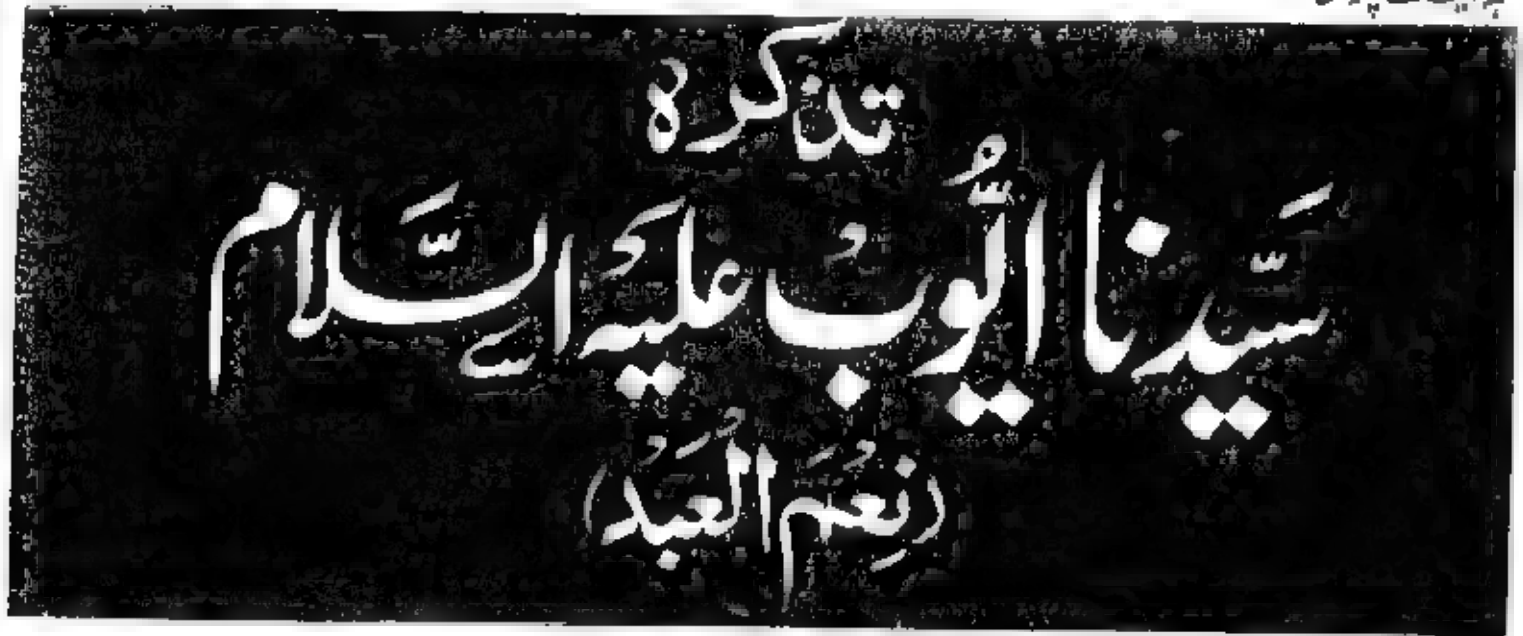 تذکرہ
سَیِّدنا ایُّوبُ عَلیہِ السَّلام
(نِعْمَ الْعَبْدُ)